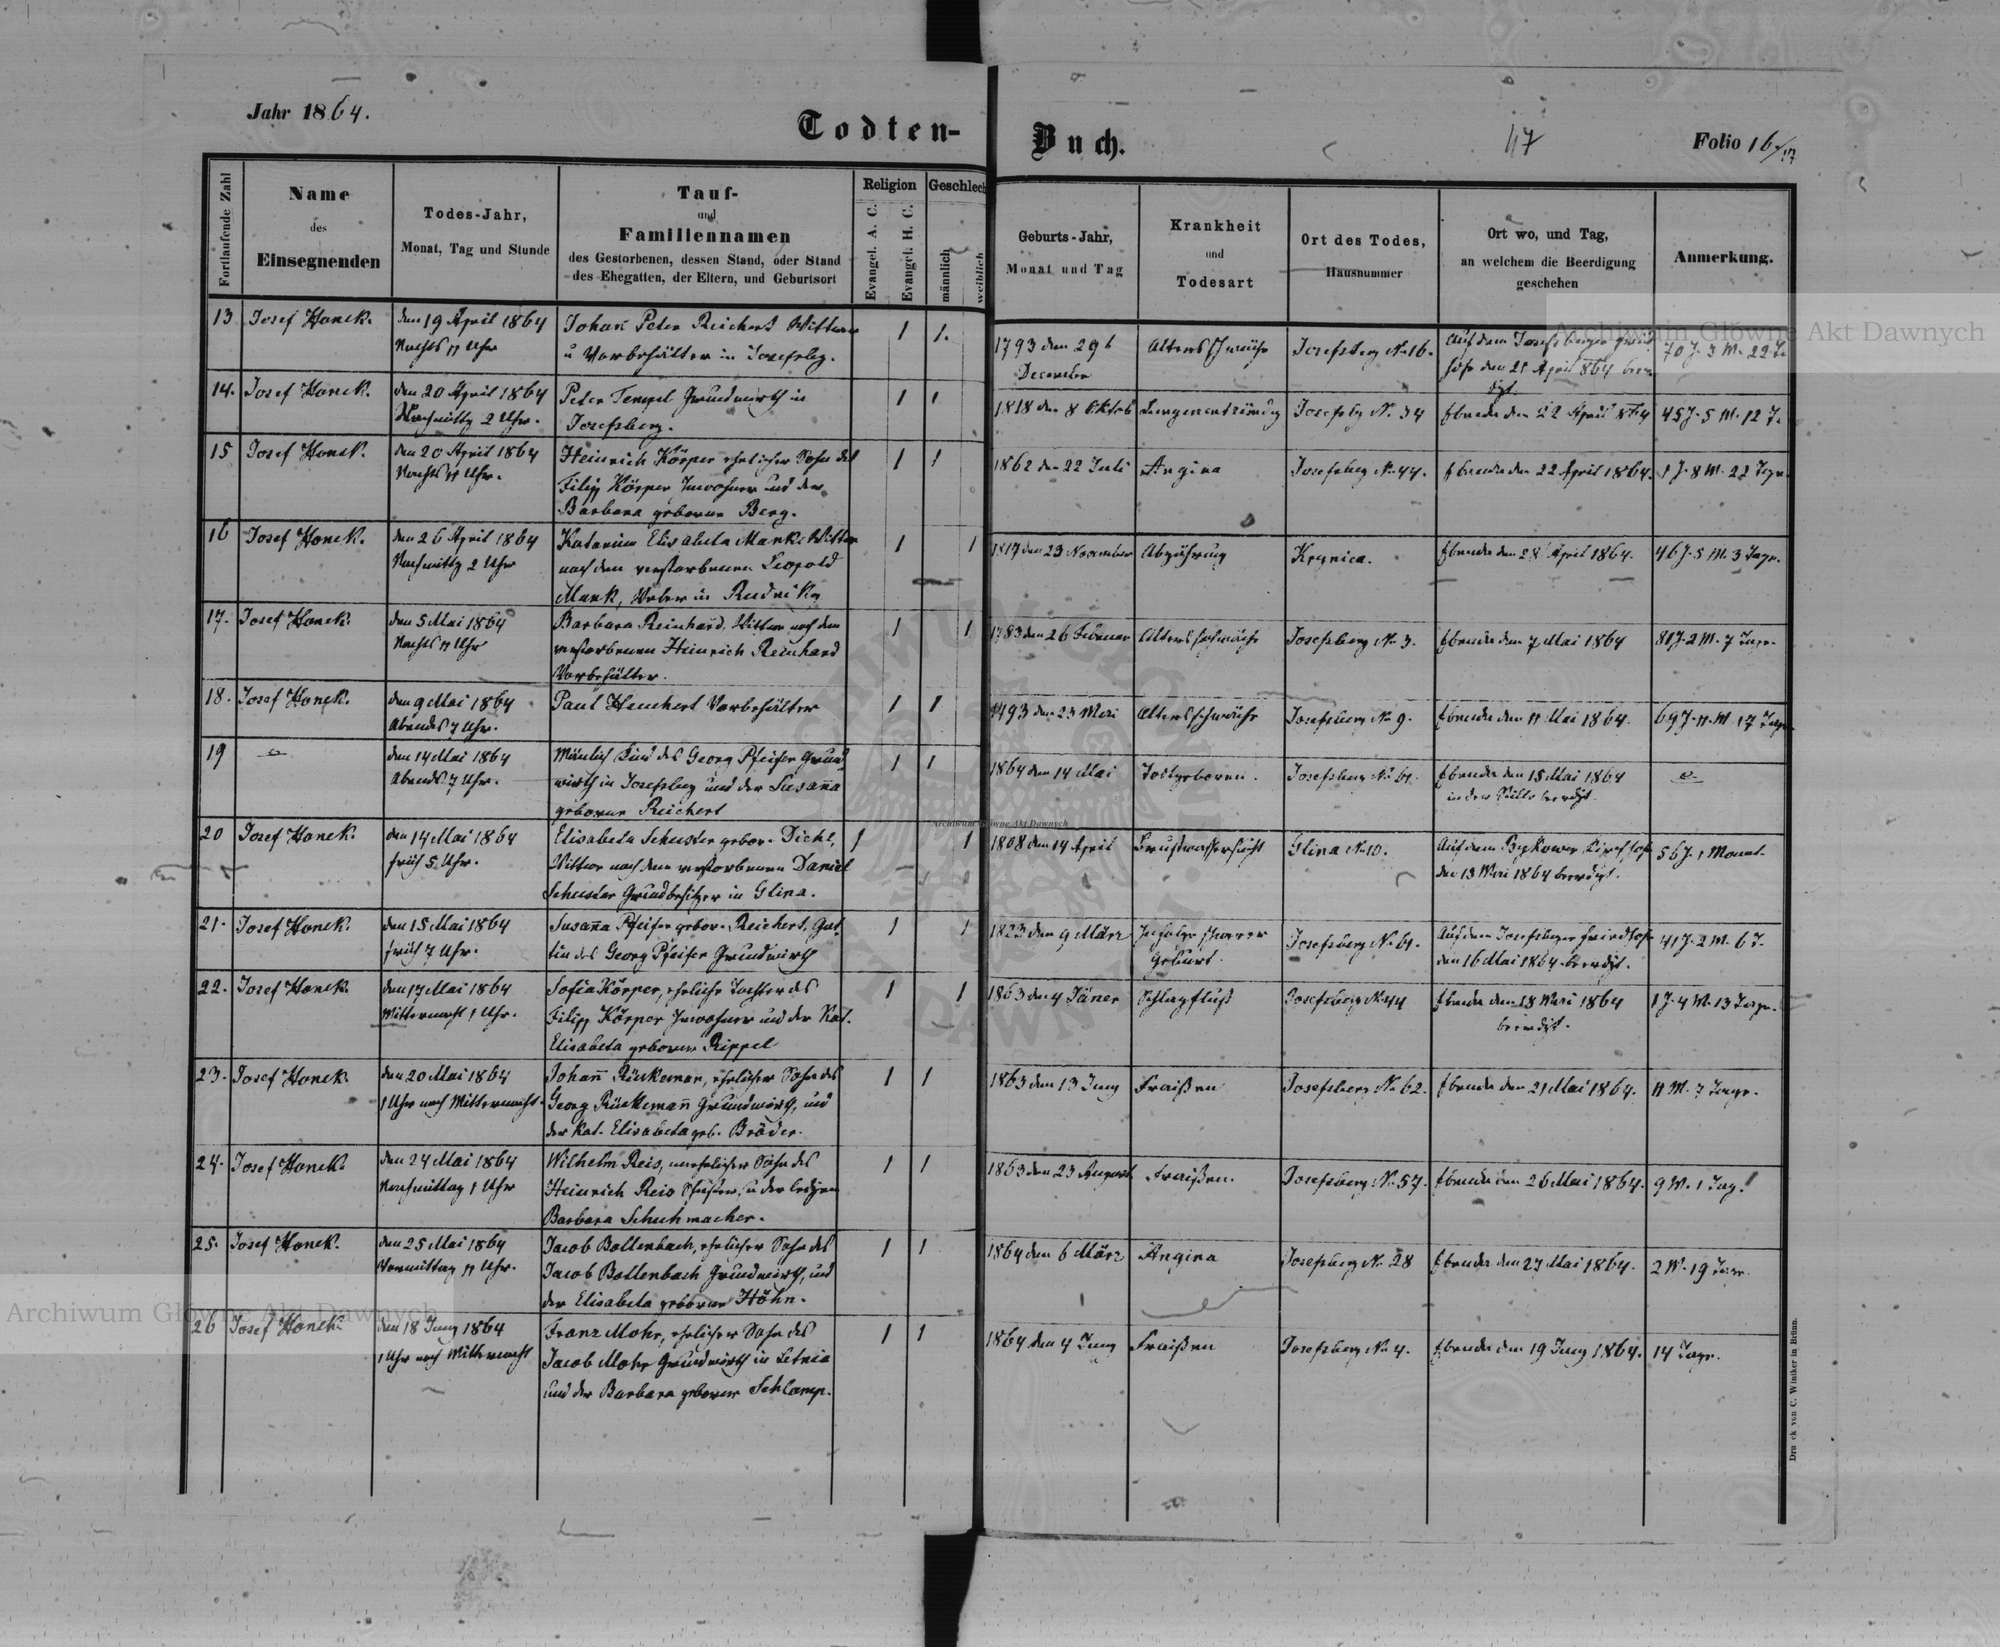 Jahr 1864.
Todten-
Buch.
117
Folio 16/17
Fortlaufende Zahl
Name
des
Einsegnenden
Todes-Jahr,
Monat, Tag und Stunde
Tauf-
und
Familiennamen
des Gestorbenen, dessen Stand, oder Stand
des Ehegatten, der Eltern, und Geburtsort
Religion
Evangel. A. C.
Evangel. H. C.
Geschlech
männlich
weiblich
Geburts-Jahr,
Monat und Tag
Krankheit
und
Todesart
Ort des Todes,
Hausnummer
Ort wo, und Tag,
an welchem die Beerdigung
geschehen
Anmerkung.
13 Josef Honek. den 19 April 1864 Johañ Peter Reichert Wittwer 1 1.
Nachts 11 Uhr u Vorbehälter in Josefsbg.
1793 den 29t Altersschwäche Josefsberg No 16. Auf dem Josefsberger Fried 70 J. 3 M. 22 T.
December hofe den 21 April 864 beer
digt.
14. Josef Honek. den 20 April 1864 Peter Tempel Grundwirth in 1 1
Nachmittg 2 Uhr. Josefsberg.
1818 den 8 Oktob Lungenentzündg Josefsbg No. 34 Ebenda den 22 April 864 45 J. 5 M. 12 T.
15 Josef Honek. den 20 April 1864 Heinrich Körper ehelicher Sohn des 1 1
Nachts 11 Uhr. Filipp Körper Inwohner und der
Barbara geborene Berg.
1862 den 22 Juli Angina Josefsberg No 44. Ebenda den 22 April 1864. 1 J. 8 M. 22 Tage.
16 Josef Honek. den 26 April 1864 Katarina Elisabeta Mank Wittwe 1 1
Nachmittg 2 Uhr nach dem verstorbenen Leopold
Mank, Weber in Rudniky
1817 den 23 November Abzährung Krynica. Ebenda den 28 April 1864. 46 J. 5 M. 3 Tage.
17. Josef Honek. den 5 Mai 1864 Barbara Reinhard, Wittwe nach dem 1 1
Nachts 11 Uhr verstorbenen Heinrich Reinhard
Vorbehälter.
1783 den 26 Februar Altersschwäche Josefsberg No 3. Ebenda den 7 Mai 1864 81 J. 2 M. 7 Tage.
18. Josef Honek. den 9 Mai 1864 Paul Heuchert Vorbehälter 1 1
Abends 7 Uhr.
1493 den 23 Mai Altersschwäche Josefsberg No 9. Ebenda den 11 Mai 1864. 69 J. 11 M. 17 Tage
19 den 14 Mai 1864 Mänlich Kind des Georg Pfeifer Grund 1 1
Abends 7 Uhr. wirth in Josefsbeg und der Susaña
geborene Reichert
1864 den 14 Mai Todtgeboren. Josefsberg No 61. Ebenda den 15 Mai 1864
in der Stille beerdigt.
20 Josef Honek. den 14 Mai 1864 Elisabeta Schuster gebor. Dicht, 1 1
früh 5 Uhr. Wittwe nach dem verstorbenen Daniel
Schuster Grundbesitzer in Glina.
1808 den 14 April Brustwassersucht Glina No 10. Auf dem Bykower Kirchhofe 56 J. 1 Monat.
den 13 Mai 1864 beerdigt.
21. Josef Honek. den 15 Mai 1864 Susaña Pfeifer gebor. Reichert, Gat 1 1
früh 7 Uhr. tin des Georg Pfeifer Grundwirth
1823 den 9 März Infolge schwerer Josefsberg No 61. Auf dem Josefsberger Friedhofe 41 J. 2 M. 6 T.
Geburt. den 16 Mai 1864 beerdigt.
22. Josef Honek. den 17 Mai 1864 Sofia Körper, eheliche Tochter des 1 1
Mitternacht 1 Uhr. Filipp Körper Inwohner und der Kat.
Elisabeta geborene Rippel
1863 den 4 Jäner Schlagfluß Josefsberg No 44 Ebenda den 18 Mai 1864 1 J. 4 M. 13 Tage.
beerdigt.
23. Josef Honek. den 20 Mai 1864 Johañ Rückeman, ehelicher Sohn des 1 1
1 Uhr nach Mitternacht. Georg Rückemañ Grundwirth, und
der Kat. Elisabeta geb. Bröder.
1863 den 13 Juny Fraißen Josefsberg No 62. Ebenda den 21 Mai 1864. 11 M. 7 Tage.
24. Josef Honek. den 24 Mai 1864 Wilhelm Reis, unehelicher Sohn des 1 1
Nachmittag 1 Uhr Heinrich Reis Schuster, u der ledigen
Barbara Schuhmacher.
1863 den 23 August Fraißen. Josefsberg No. 57. Ebenda den 26 Mai 1864. 9 M. 1 Tag.
25. Josef Honek. den 25 Mai 1864 Jacob Bollenbach, ehelicher Sohn des 1 1
Vormittag 11 Uhr. Jacob Bollenbach Grundwirth, und
der Elisabeta geborene Höhn.
1864 den 6 März Angina Josefsberg No. 28 Ebenda den 27 Mai 1864. 2 M. 19 Tage.
26 Josef Honek. den 18 Juny 1864 Franz Mohr, ehelicher Sohn des 1 1
1 Uhr nach Mitternacht Jacob Mohr Grundwirth in Letnia
und der Barbara geborene Schlamp.
1864 den 4 Juny Fraißen Josefsberg No. 4. Ebenda den 19 Juny 1864. 14 Tage.
Druck von C. Winiker in Brünn.
Archiwum Główne Akt Dawnych
Archiwum Główne Akt Dawnych
Archiwum Główne Akt Dawnych